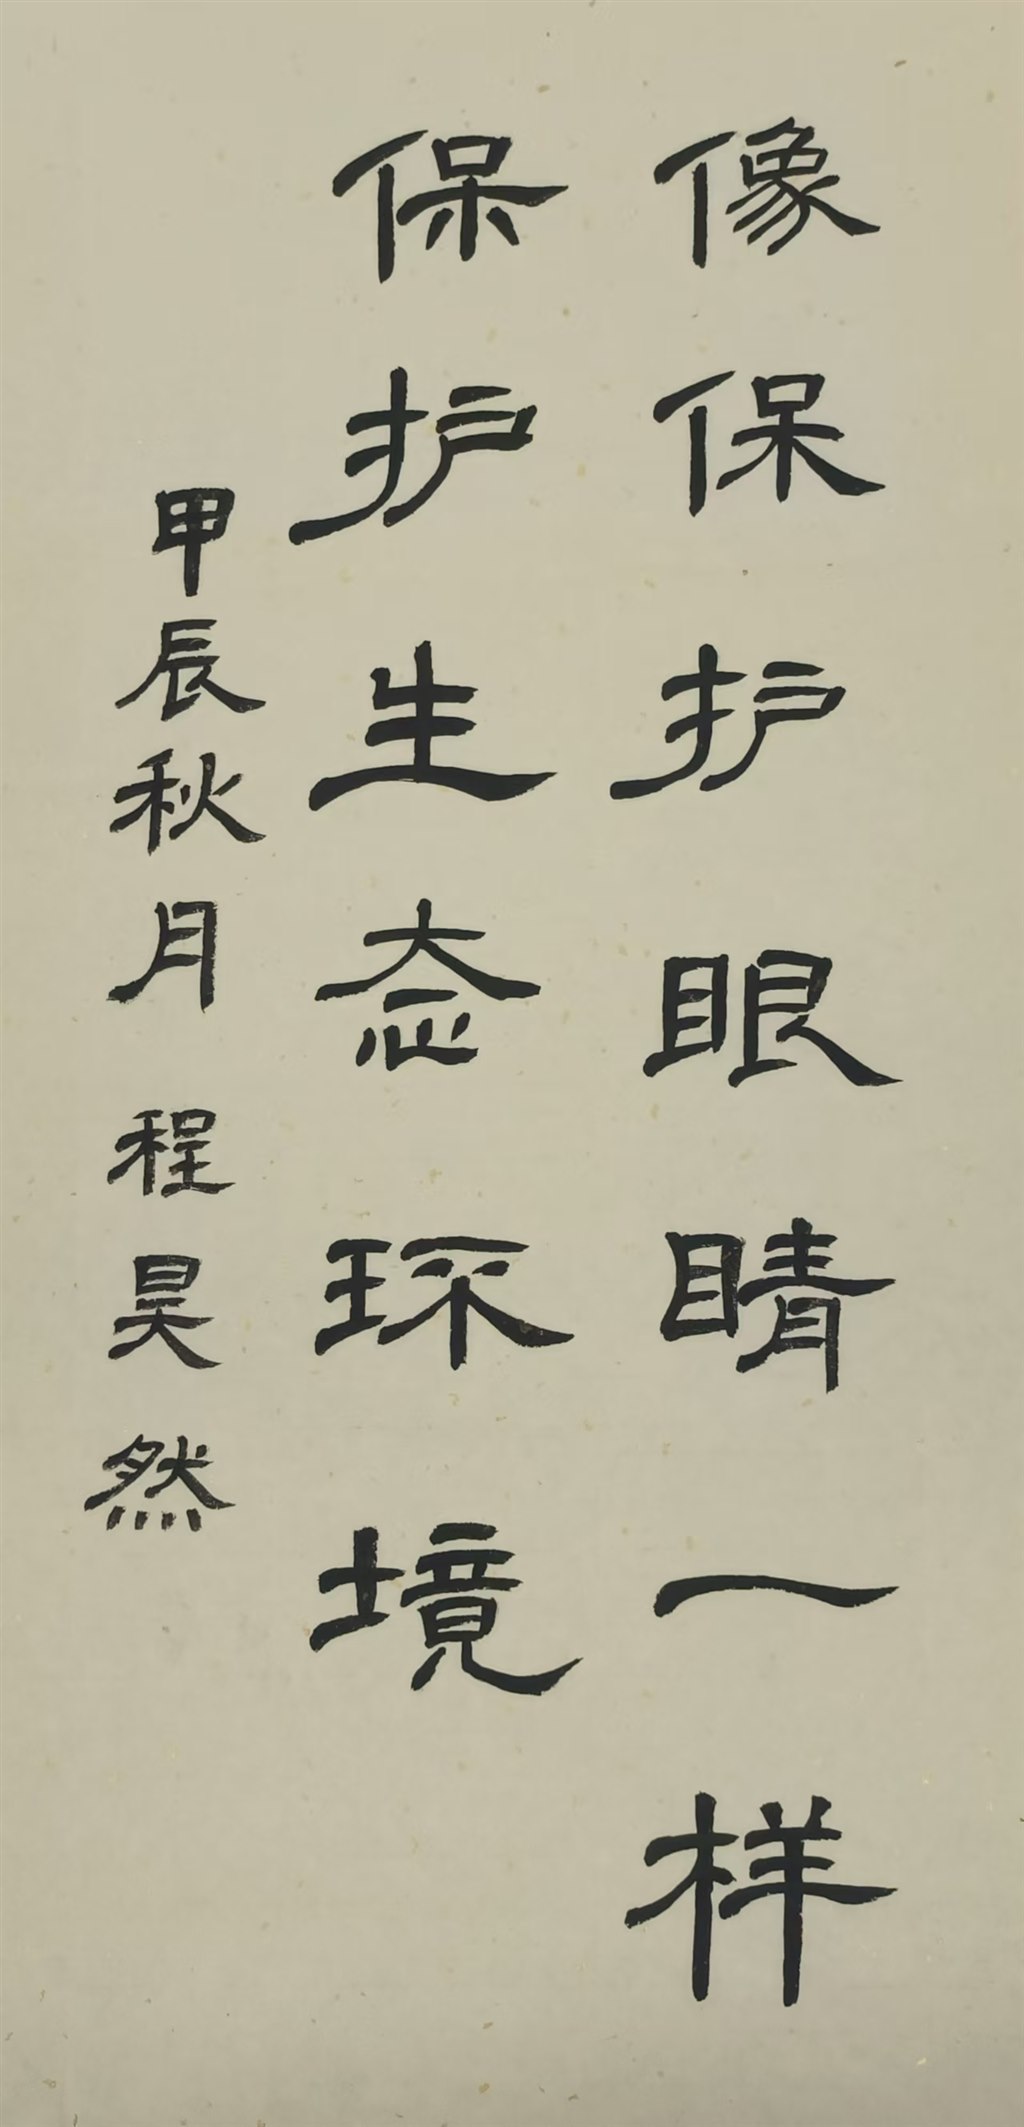 像保护眼睛一样
保护生态环境
甲辰秋月程昊然